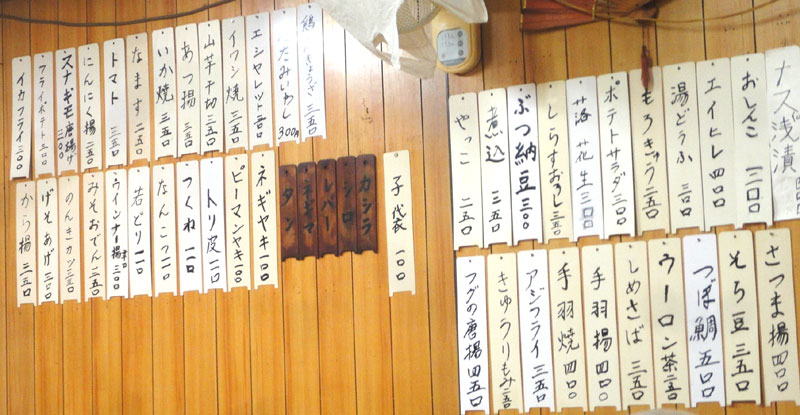 ナス浅漬
おしんこ 三〇〇
エイヒレ 四〇〇
湯どうふ 三〇〇
もろきゅう 二五〇
ポテトサラダ 三〇〇
落花生 三〇〇
しらすおろし 三五〇
ぶつ納豆 三五〇
煮込 三五〇
やっこ 二五〇
さつま揚 四〇〇
そら豆 三五〇
つぼ鯛 五〇〇
ウーロン茶 二五〇
しめさば 三五〇
手羽揚 四〇〇
手羽焼 四〇〇
アジフライ 三五〇
きゅうりもみ 二五〇
フグの唐揚 四五〇
たたみいわし 300円
エシャレット 三〇〇
イワシ焼 三五〇
山芋千切 三五〇
あつ揚 三五〇
いか焼 三五〇
なます 二五〇
トマト 三五〇
にんにく揚 二五〇
スナギモ唐揚げ 三〇〇
フライポテト 三五〇
イカフライ 三〇〇
子袋 一〇〇
カシラ
シロ
レバー
タン
ネギヤキ 一〇〇
ピーマンヤキ 一〇〇
トリ皮 一一〇
つくね 一一〇
なんこつ 一一〇
若どり 一一〇
ウインナー揚 三〇〇
みそおでん 二五〇
のんきカツ 三五〇
げそあげ 三〇〇
から揚 三五〇